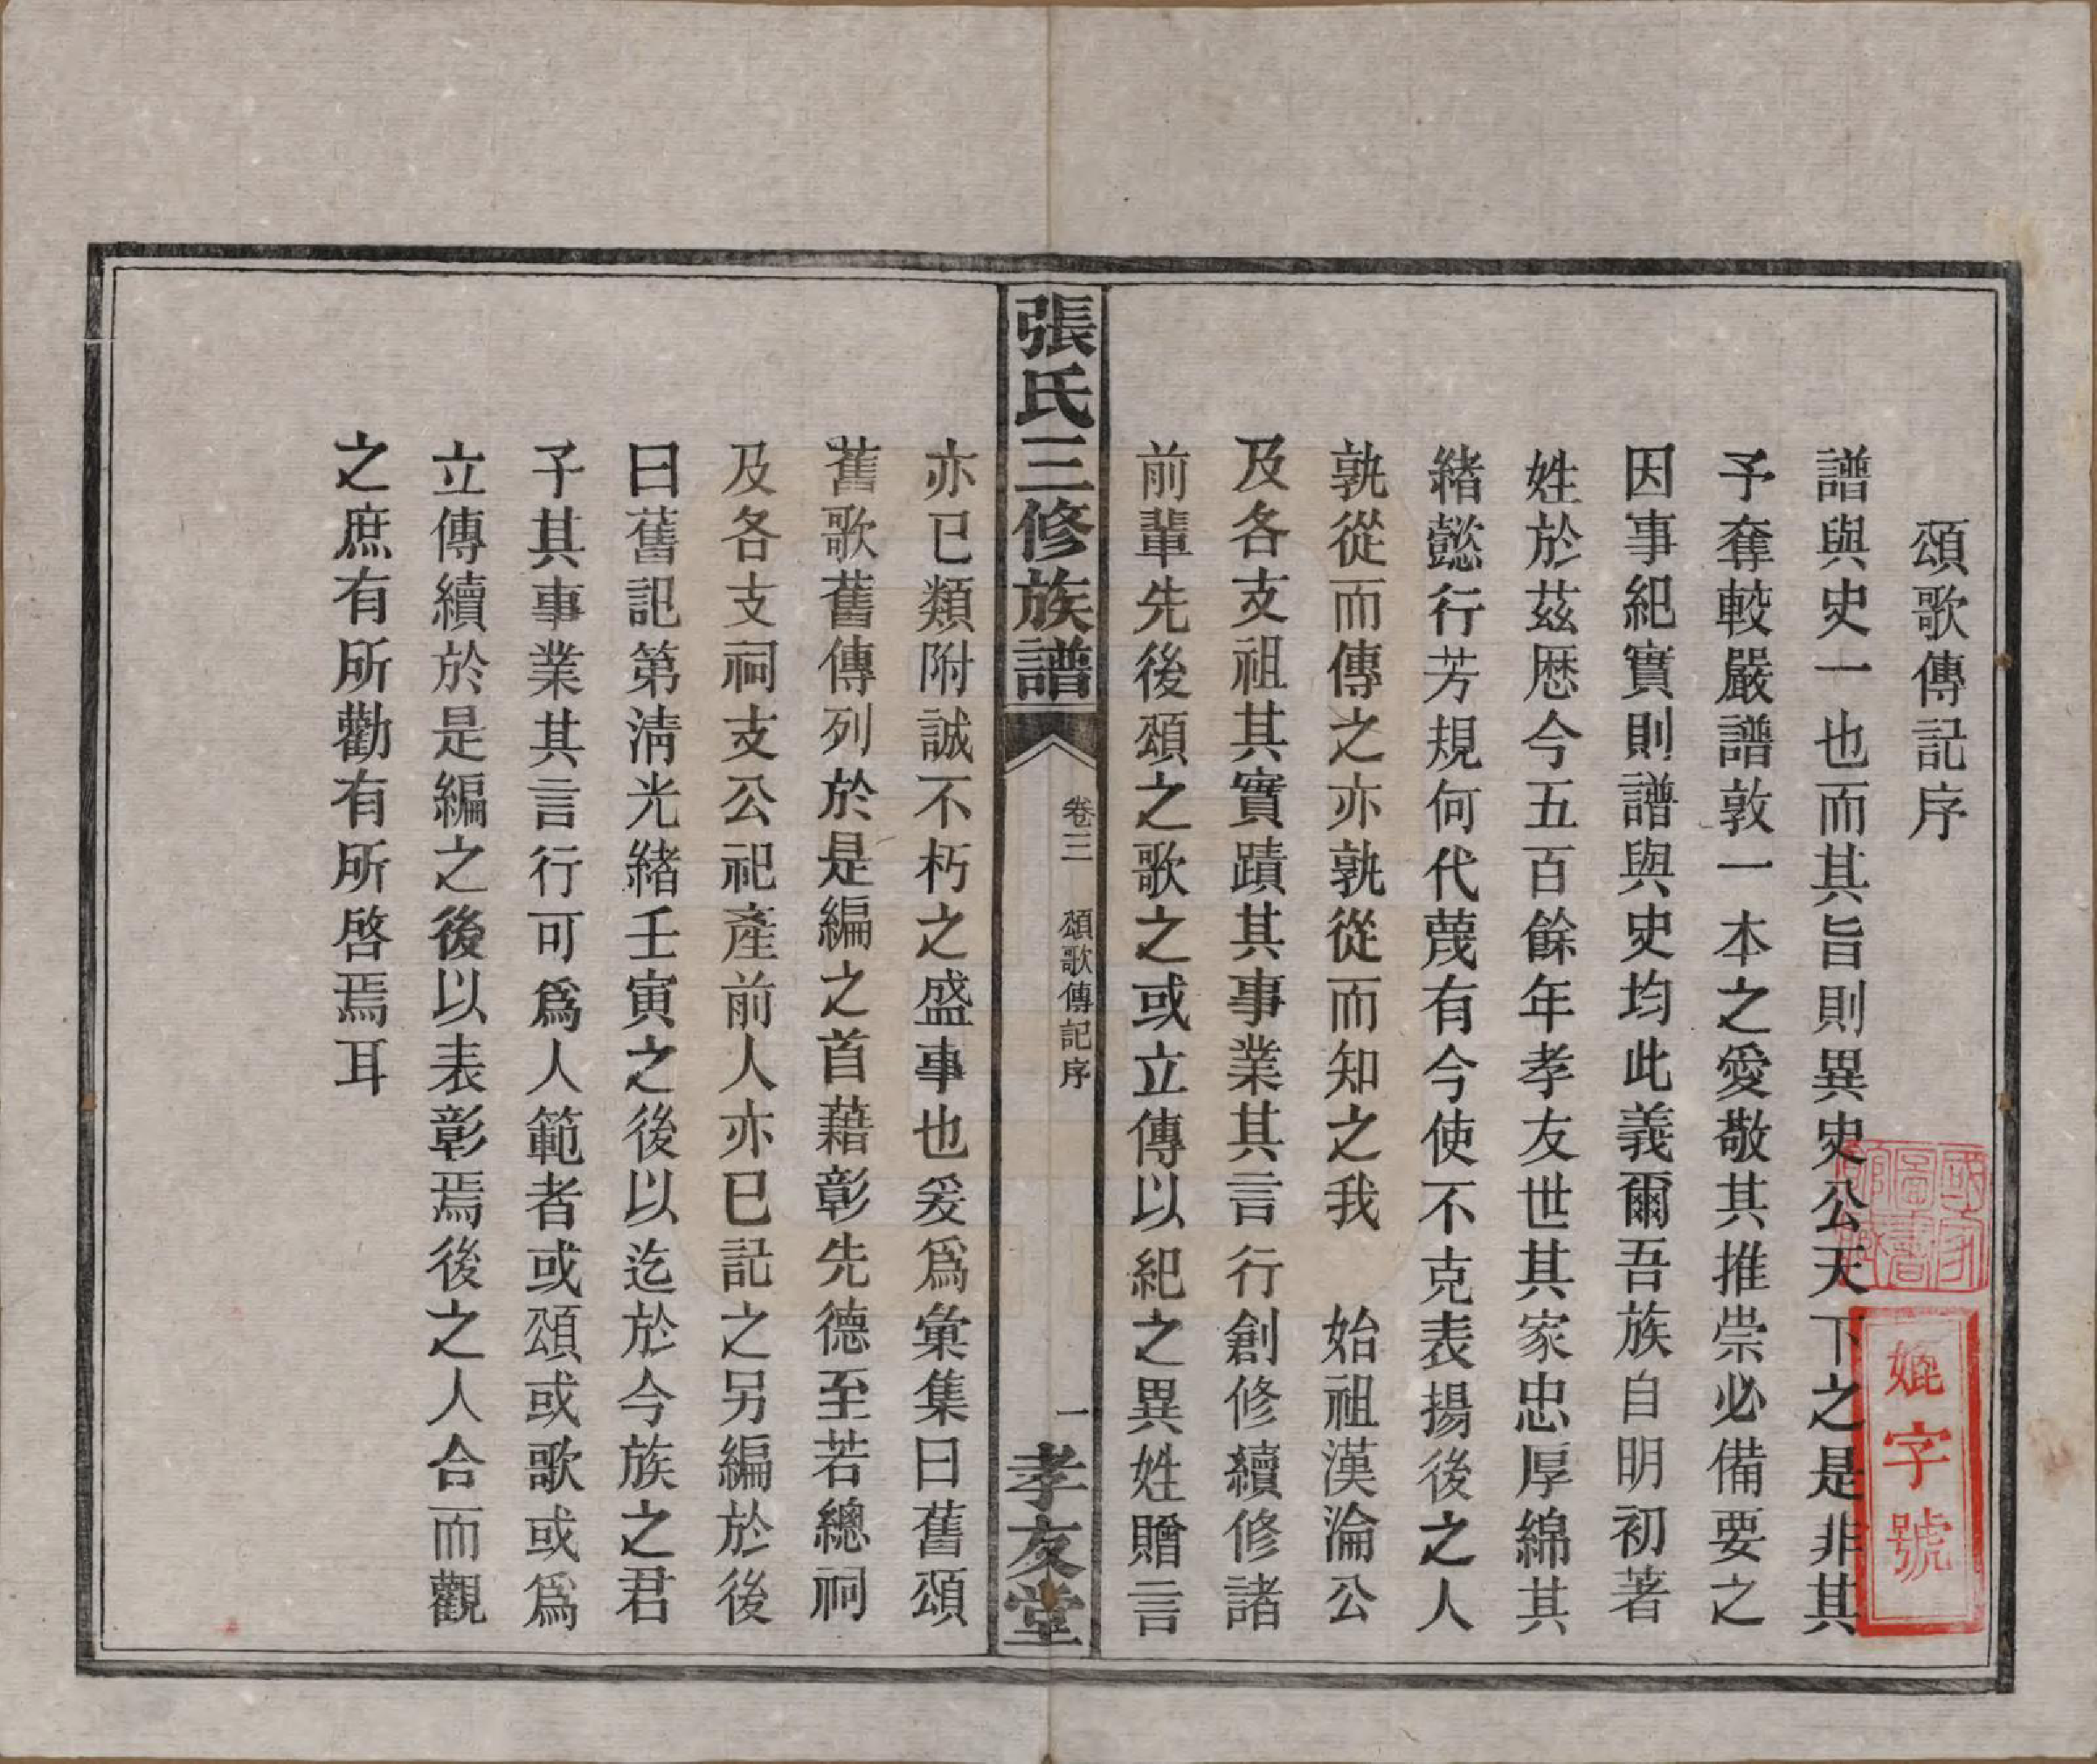 頌歌傳記序
譜與史一也而其旨則異史公天下之是非其
予奪較嚴譜敦一本之愛敬其推崇必備要之
因事紀實則譜與史均此義爾吾族自明初著
姓於茲歷今五百餘年孝友世其家忠厚綿其
緒懿行芳規何代蔑有今使不克表揚後之人
孰從而傳之亦孰從而知之我 始祖漢淪公
及各支祖其實蹟其事業其言行創修續修諸
前輩先後頌之歌之或立傳以紀之異姓贈言
張氏三修族譜
卷三 頌歌傳記序
一
孝友堂
亦已類附誠不朽之盛事也爰爲彙集曰舊頌
舊歌舊傳列於是編之首藉彰先德至若總祠
及各支祠支公祀產前人亦已記之另編於後
曰舊記第清光緒壬寅之後以迄於今族之君
子其事業其言行可爲人範者或頌或歌或爲
立傳續於是編之後以表彰焉後之人合而觀
之庶有所勸有所啓焉耳
國家圖書館藏
字號